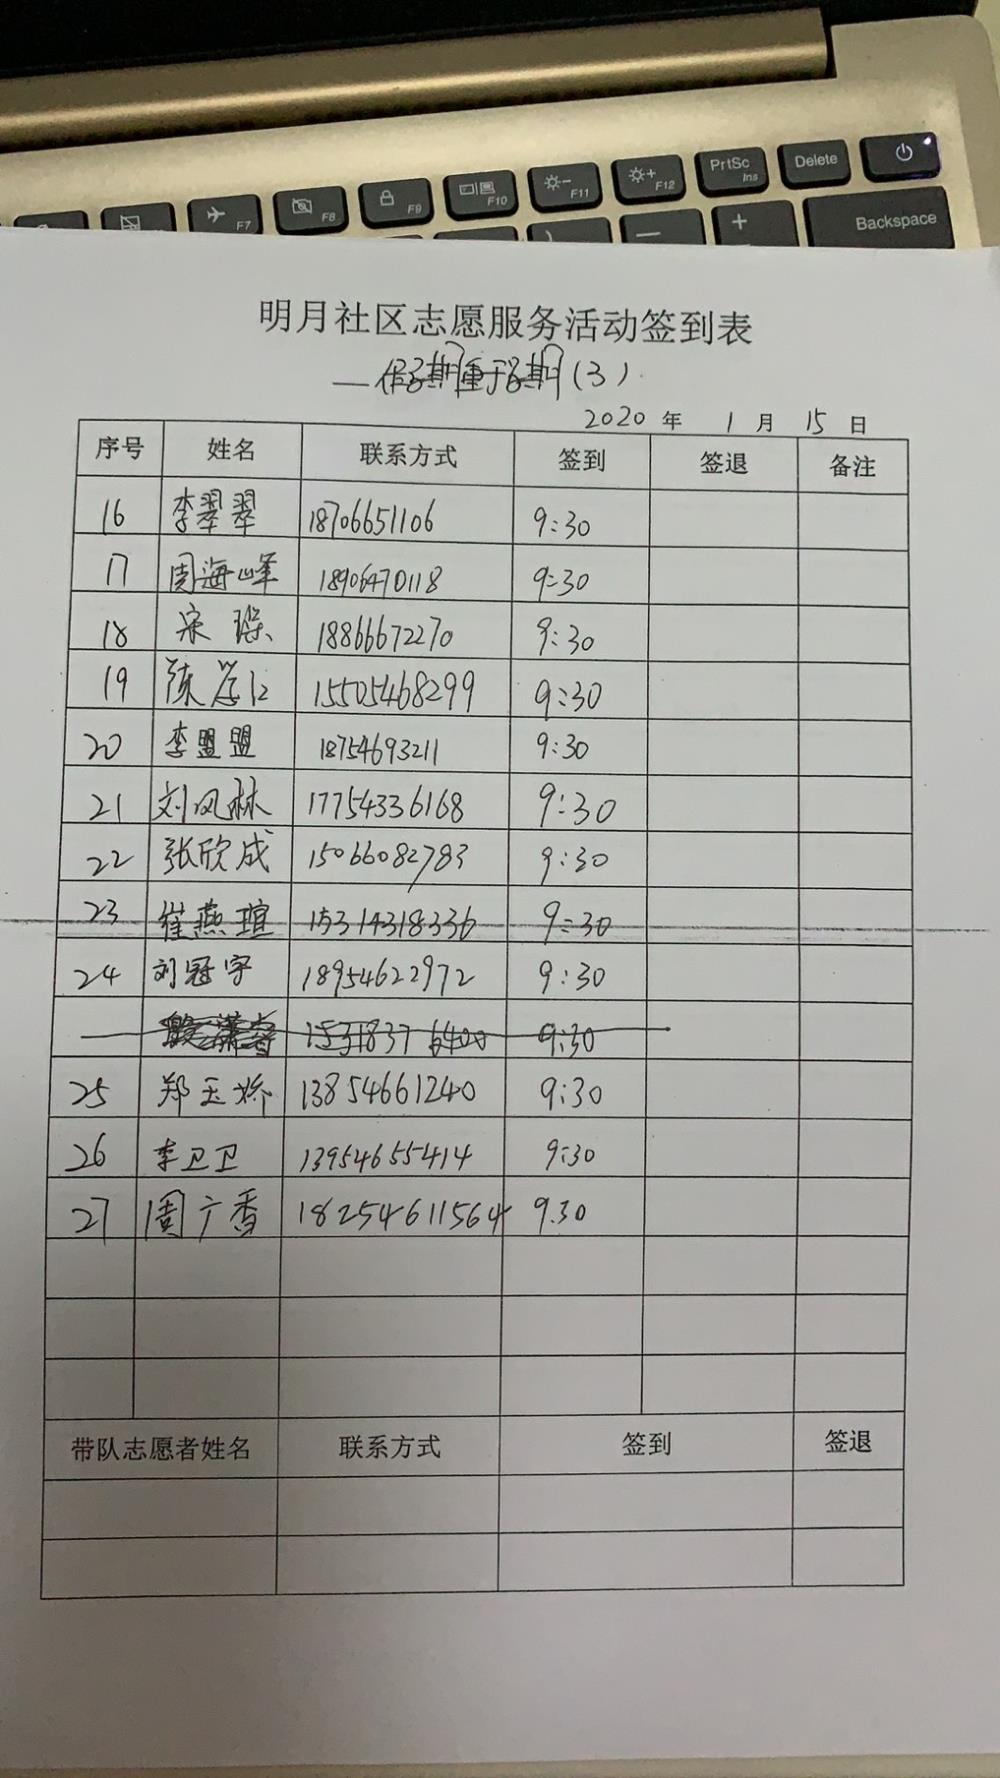 F7
F8
F9
F10
F11
F12
PrtSc
Ins
Delete
Backspace
明月社区志愿服务活动签到表
(3)
2020 年 1 月 15 日
序号 姓名 联系方式 签到 签退 备注
16 李翠翠 18706651106 9:30
17 周海峰 18906470118 9:30
18 宋 璨 18866672270 9:30
19 陈 15505468299 9:30
20 李盟盟 18754693211 9:30
21 刘风林 17754336168 9:30
22 张欣成 15066082783 9:30
23 崔燕瑄 15314318336 9:30
24 刘冠宇 18954622972 9:30
9:30
25 郑玉娇 13854661240 9:30
26 李卫卫 13954655414 9:30
27 周广香 18254611564 9.30
带队志愿者姓名 联系方式 签到 签退